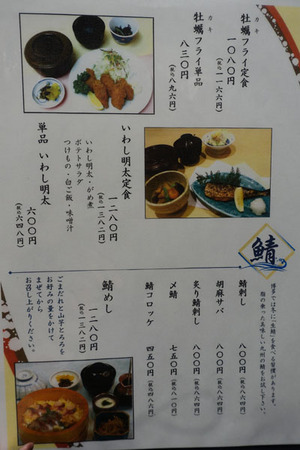 牡蠣フライ定食
カキ
一〇八〇円
(税込一一六六円)
牡蠣フライ単品
カキ
八三〇円
(税込八九六円)
いわし明太定食
一二八〇円
(税込一三八二円)
いわし明太・がめ煮
ポテトサラダ
つけもの・白ご飯・味噌汁
単品 いわし明太
六〇〇円
(税込六四八円)
鯖
博多では冬に「生鯖」を食べる習慣があります。
脂の乗った美味しい九州の鯖をお試し下さい。
鯖刺し
八〇〇円
(税込八六四円)
胡麻サバ
八〇〇円
(税込八六四円)
炙り鯖刺し
八〇〇円
(税込八六四円)
〆鯖
七五〇円
(税込八一〇円)
鯖コロッケ
四五〇円
(税込四八六円)
鯖めし
一二八〇円
(税込一三八二円)
ごまだれと山芋とろろを
お好みの量をかけて
まぜてから
お召し上がりください。